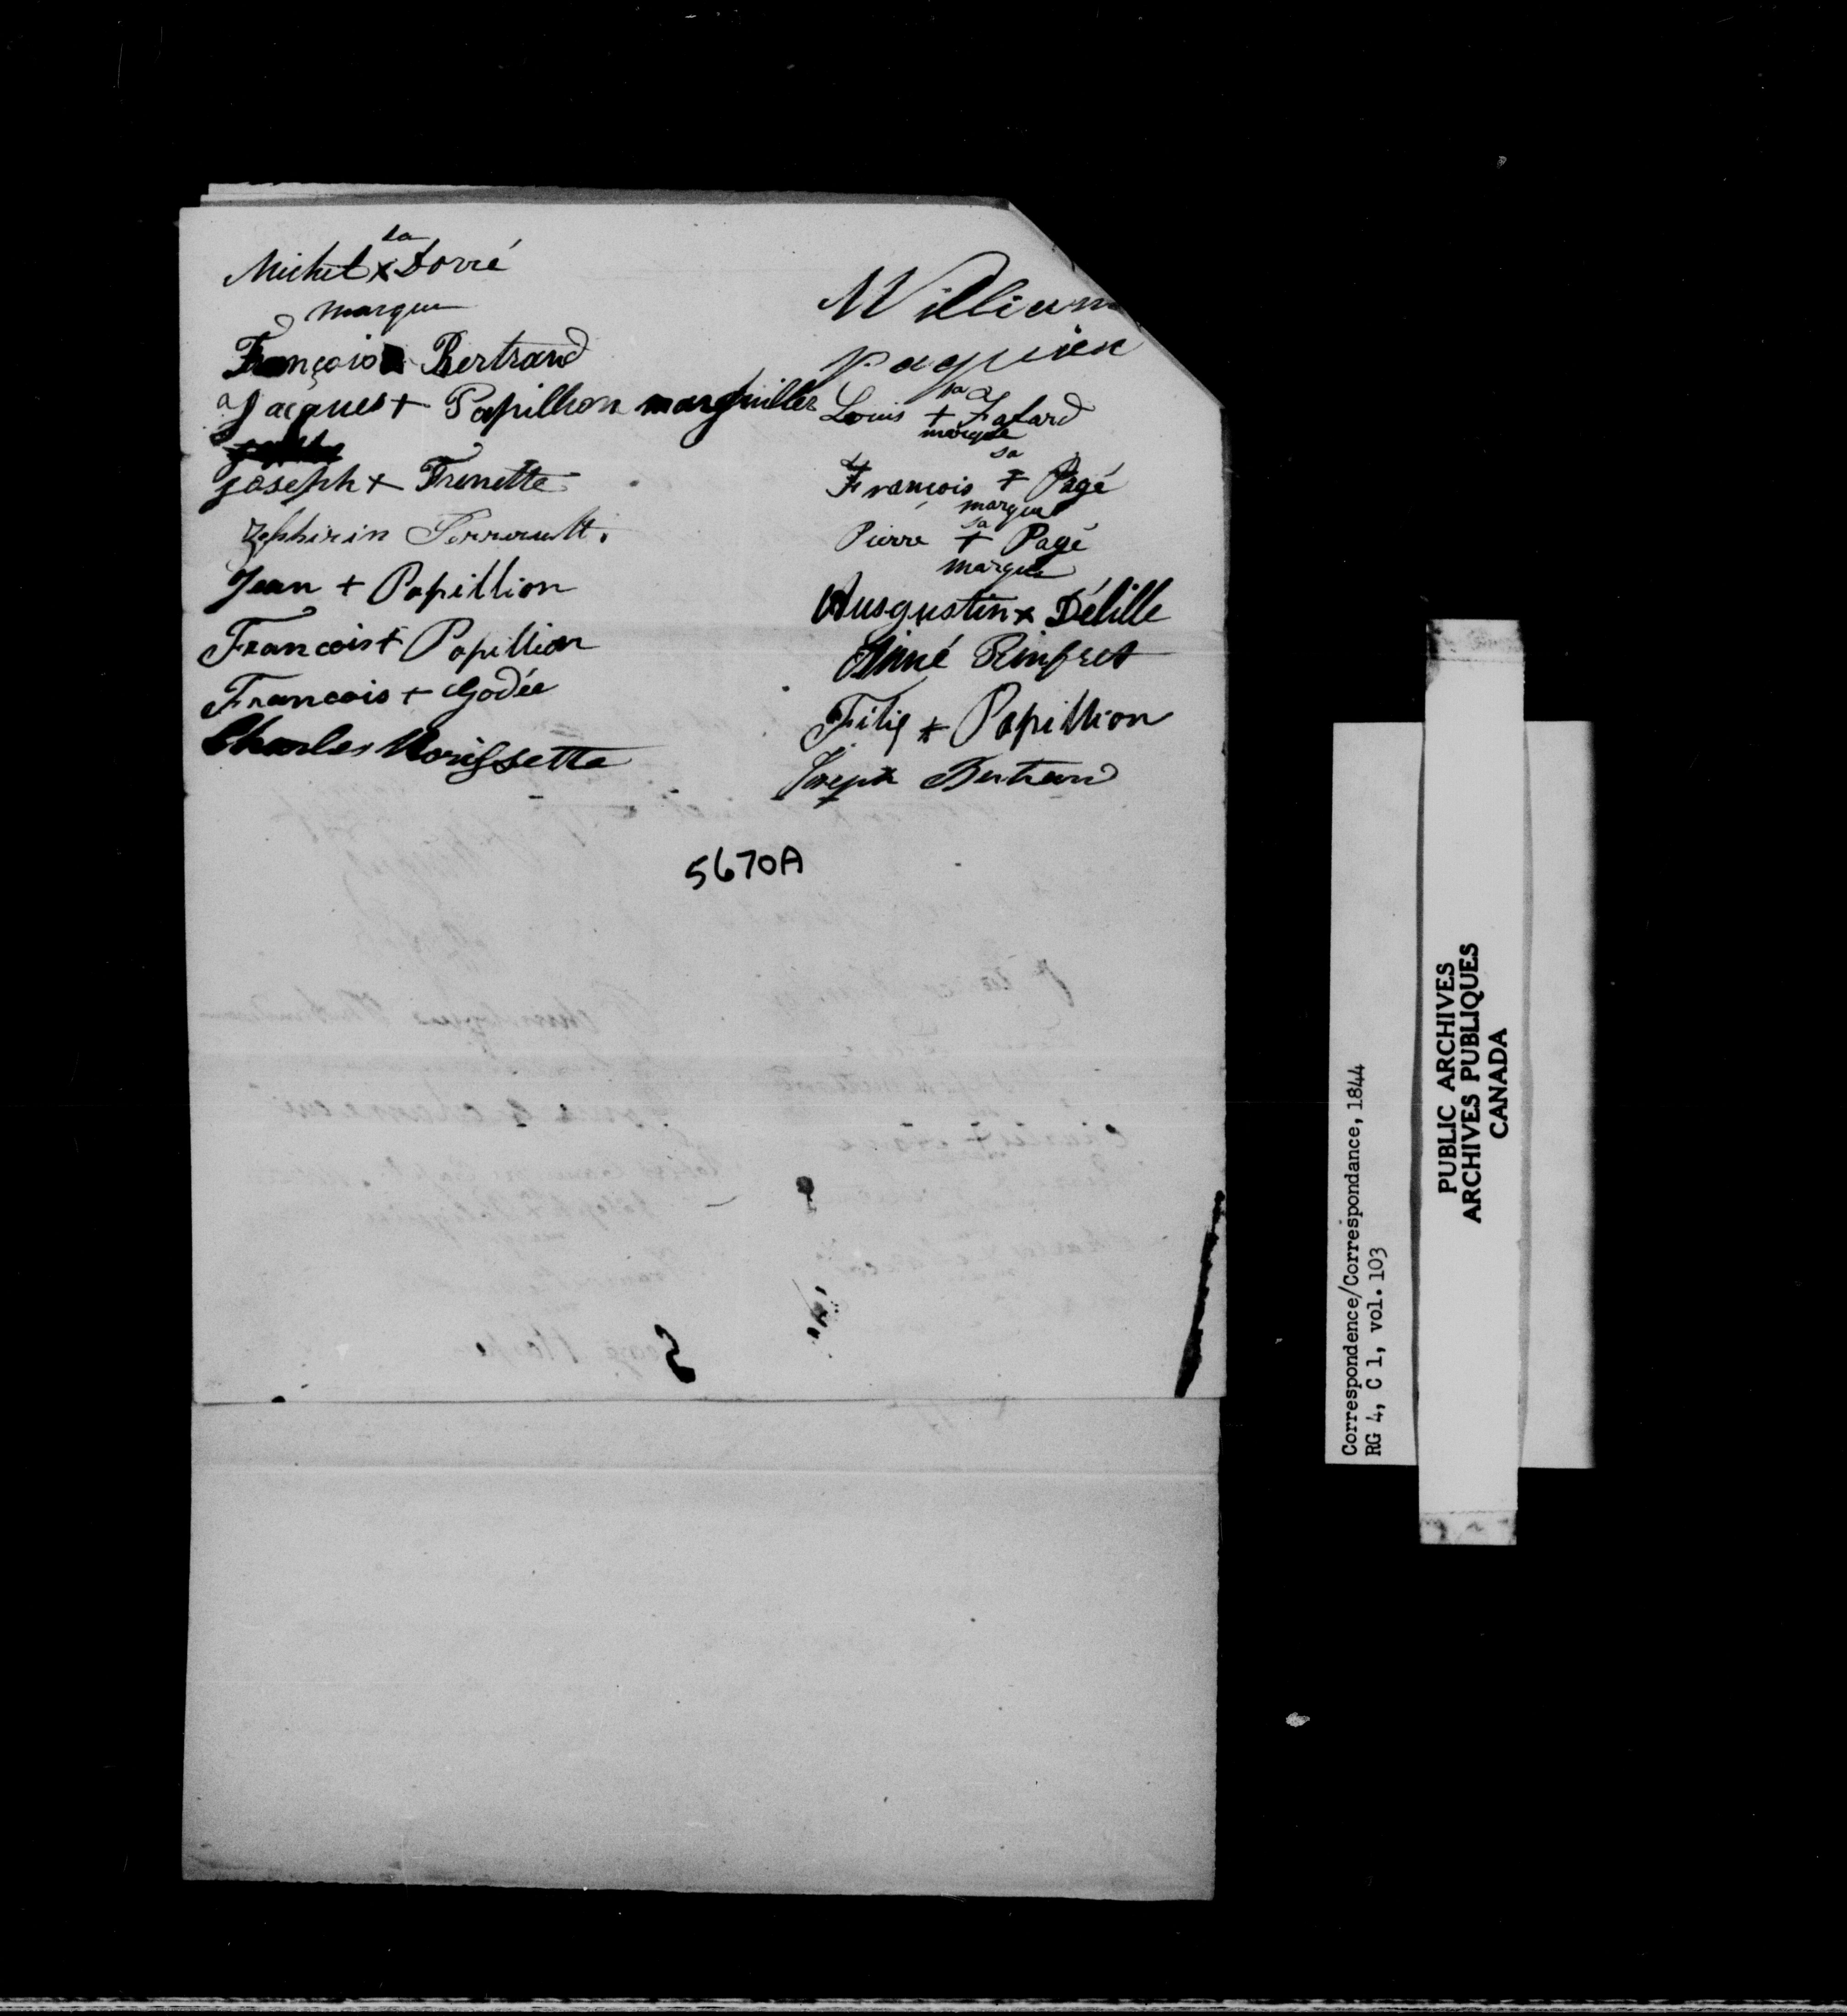 sa
Michel x Dorré
marque
François Bertrand
Jacques + Papillion marguiller
Joseph + Frenette
Zephirin Perrault.
Jean + Papillion
Francois + Papillion
Francois + Godée
Charles Morissette
William
paquien
sa
Louis + Falard
marque
sa
François + Pagé
marque
sa
Pierre + Pagé
marque
Ausgustin x Délille
Aimé Rinfret
Filig + Papillion
Joseph Bertrand
5670A
Correspondence/Correspondance, 1844
RG 4, C 1, vol. 103
PUBLIC ARCHIVES
ARCHIVES PUBLIQUES
CANADA